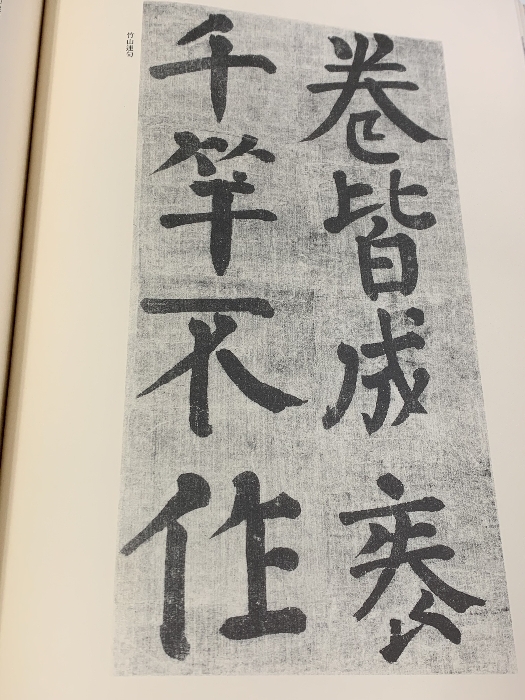 竹山連句
卷皆成袠
千竿不作